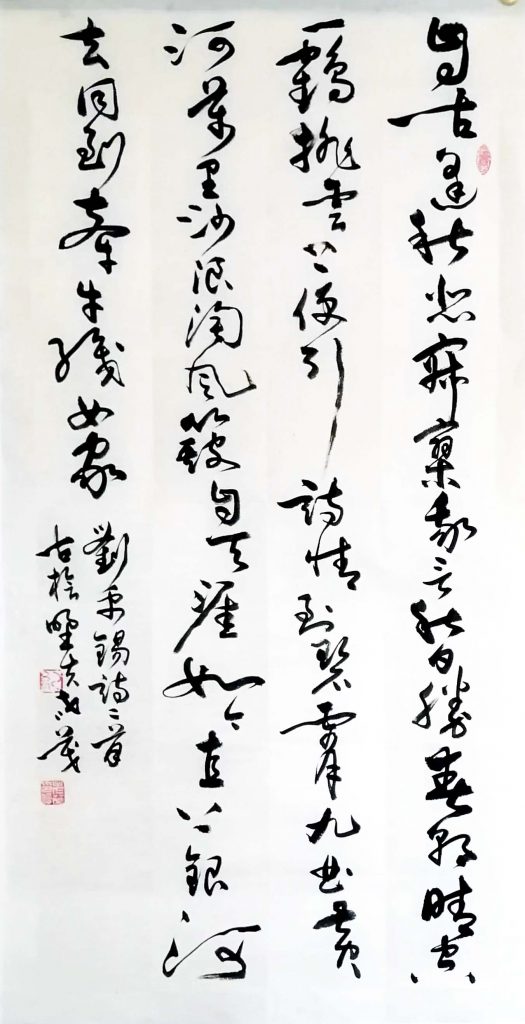 自古逢秋悲寂寥我言秋日勝春朝晴空
一鶴排雲上便引詩情到碧霄九曲黃
河萬里沙浪淘風簸自天涯如今直上銀河
去同到牽牛織女家
劉禹錫詩二首
古 野夫